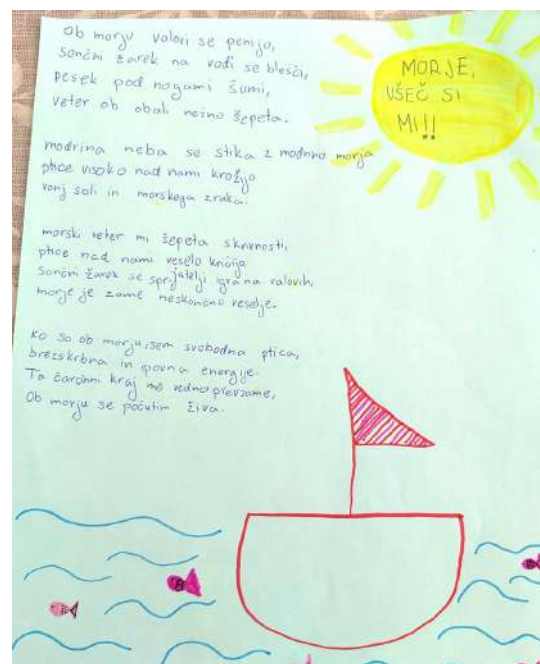 Ob morju valovi se penijo,
Sončni žarek na vodi se blešči,
pesek pod nogami šumi,
veter ob obali nežno šepeta.
modrina neba se stika z modrino morja
ptice visoko nad nami krožijo
vonj soli in morskega zraka.
morski veter mi šepeta skrivnosti,
ptice nad nami veselo kričijo
Sončni žarek se sprijatelji igra na valovih,
morje je zame neskončno veselje.
Ko so ob morju, sem svobodna ptica,
brezskrbna in polna energije.
Ta čarobni kraj me vedno prevzame,
Ob morju se počutim živa.
MORJE,
VŠEČ SI
MI!!